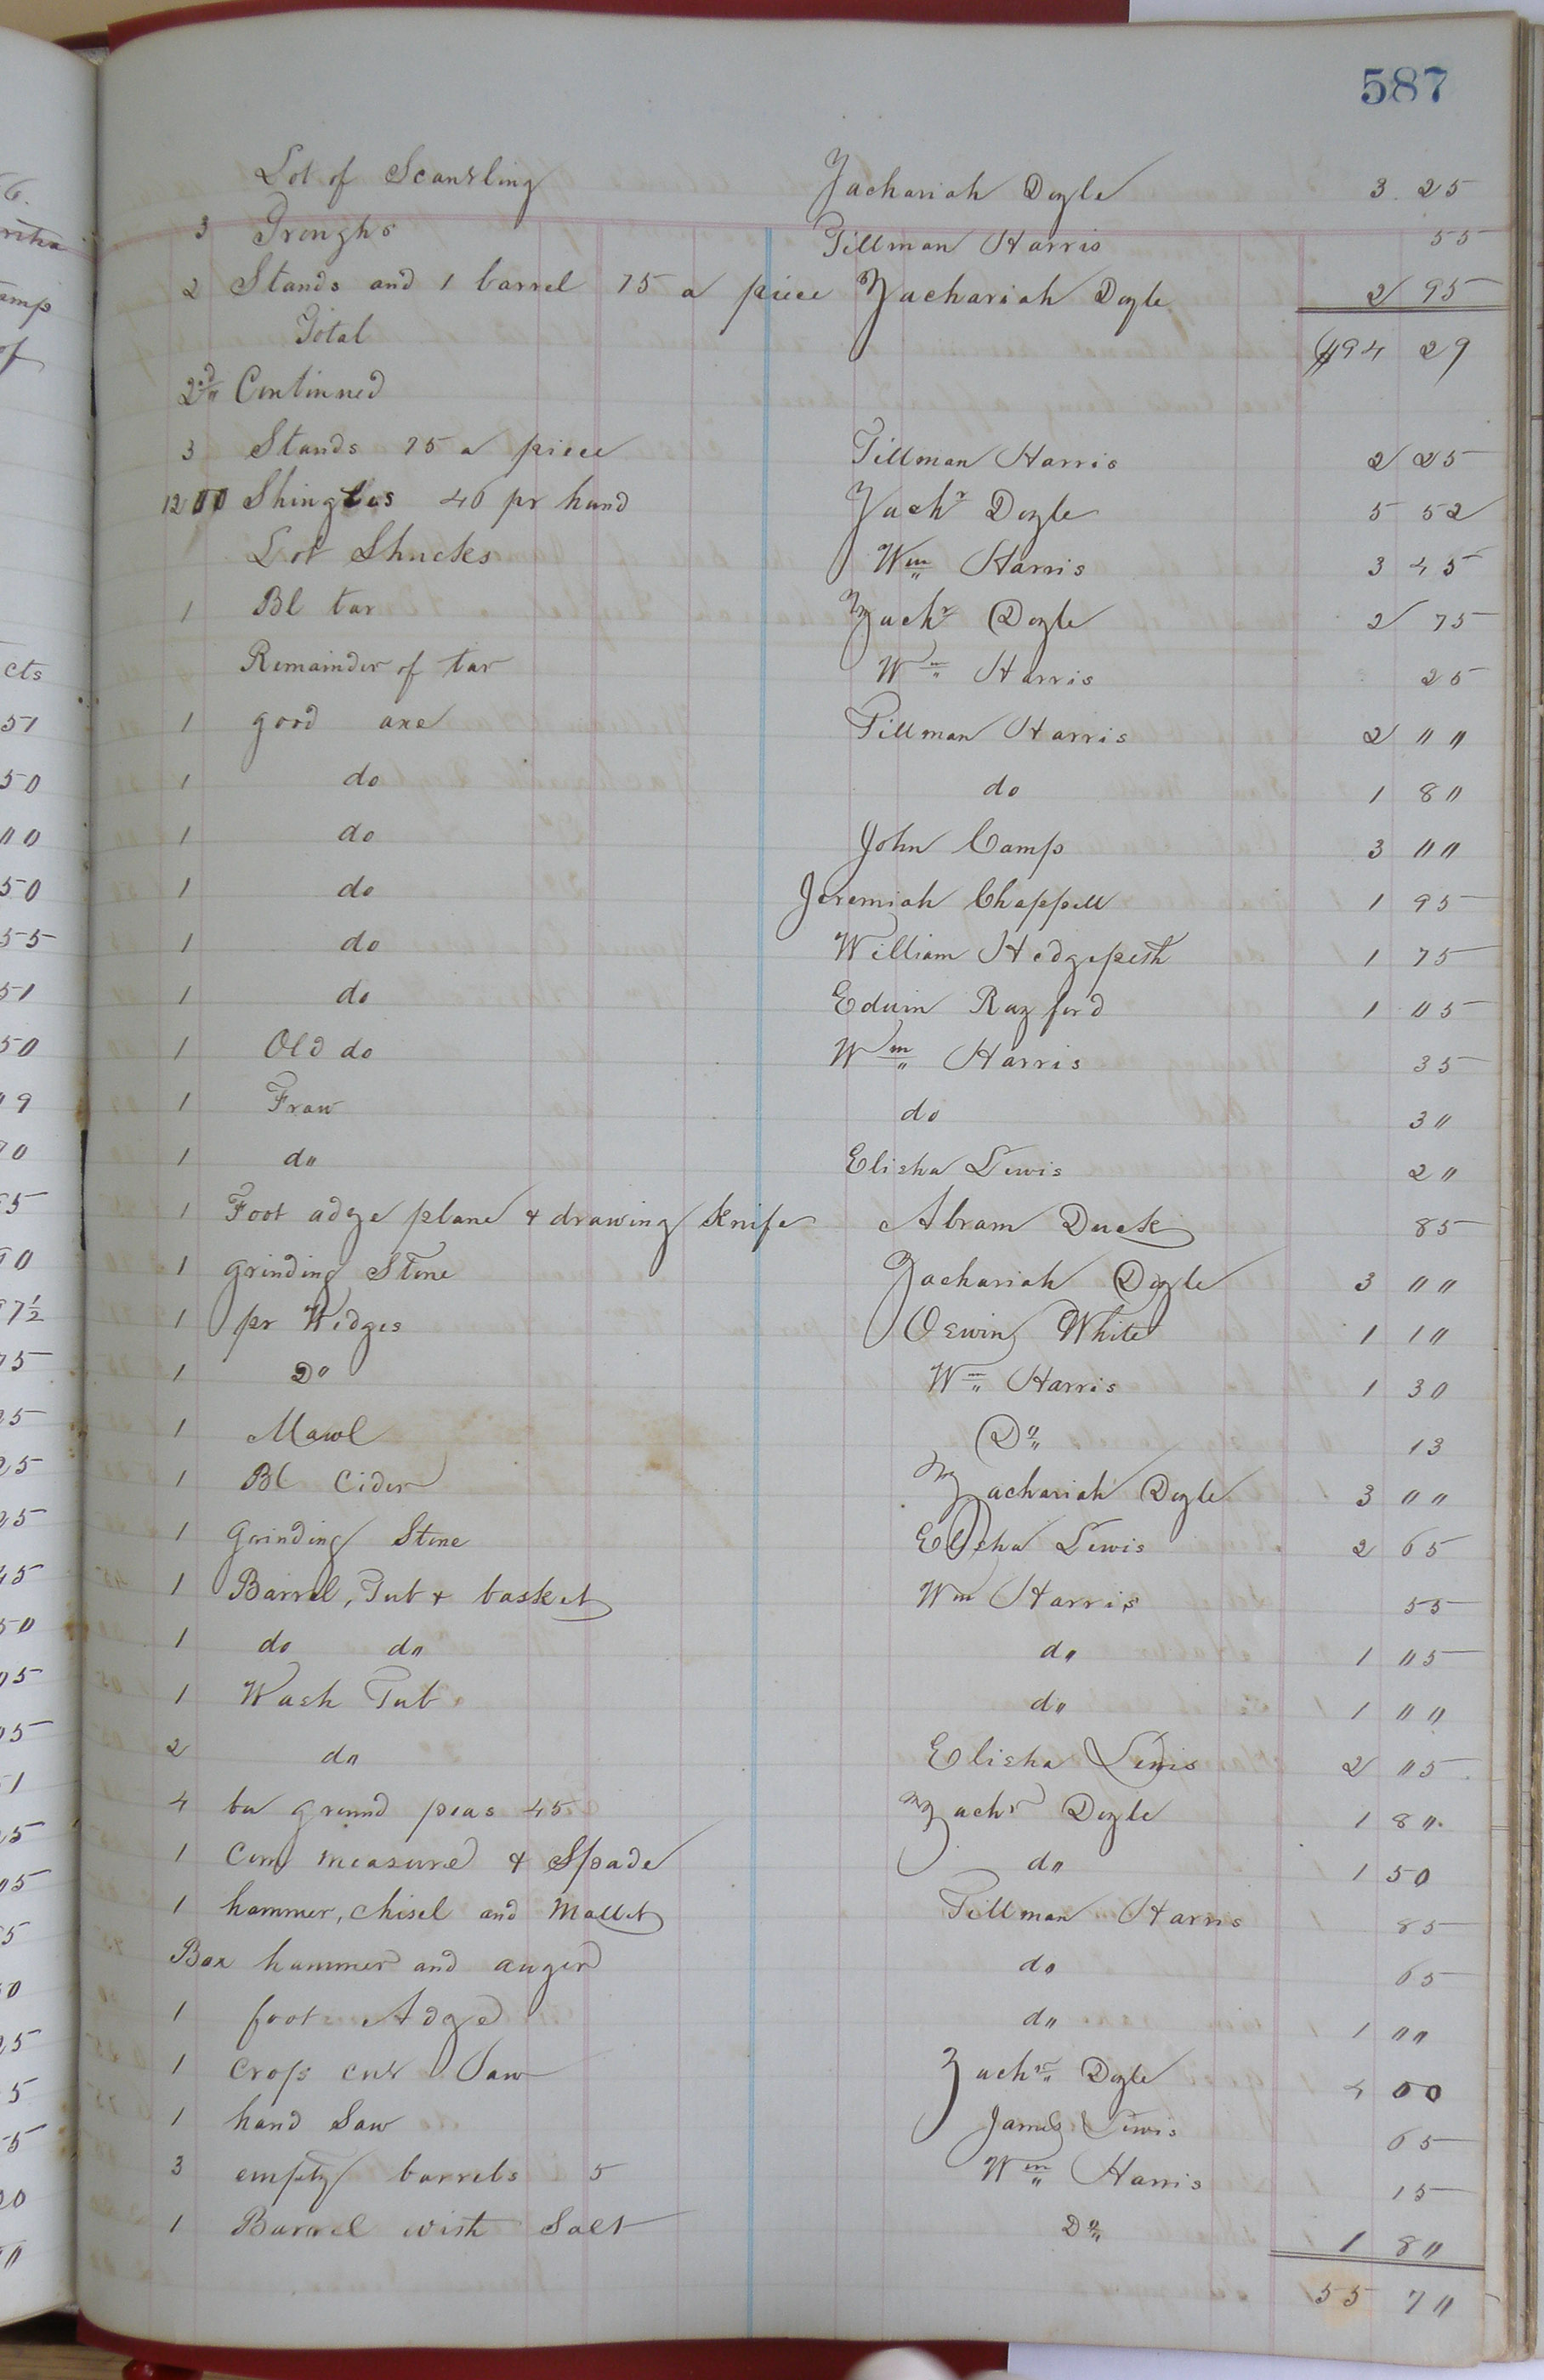 587
Lot of Scantling Zachariah Doyle 3 25
3 Troughs Tillman Harris 55
2 Stands and 1 barrel 75 a piece Zachariah Doyle 2 95
Total $194 29
2nd Continued
3 Stands 75 a piece Tillman Harris 2 25
1200 Shingles 46 pr hund Zachr Doyle 5 52
Lot Shucks Wm Harris 3 45
1 Bl tar Zachr Doyle 2 75
Remainder of tar Wm Harris 25
1 good axe Tillman Harris 2 00
1 do do 1 80
1 do John Camp 3 00
1 do Jeremiah Chappell 1 95
1 do William Hedgepeth 1 75
1 do Edwin Rayford 1 05
1 Old do Wm Harris 35
1 Fraw do 30
1 do Elisha Lewis 20
1 Foot adge plane & drawing Knife Abram Duck 85
1 grinding Stone Zachariah Doyle 3 00
1 pr Wedges Oswin White 1 10
1 Do Wm Harris 1 30
1 Mawl Do 13
1 Bl Cider Zachariah Doyle 3 00
1 Grinding Stone Elisha Lewis 2 65
1 Barrel, Tub & basket Wm Harris 55
1 do do do 1 05
1 Wash Tub do 1 00
2 do Elisha Lewis 2 05
4 bu ground peas 45 Zachr Doyle 1 80
1 Corn measure & Spade do 1 50
1 hammer, chisel and Mallet Tillman Harris 85
Box hammer and auger do 65
1 foot Adge do 1 00
1 Cross cut Saw Zachr Doyle 4 00
1 hand Saw James Lewis 65
3 empty barrels 5 Wm Harris 15
1 Barrel with Salt Do 1 80
55 70